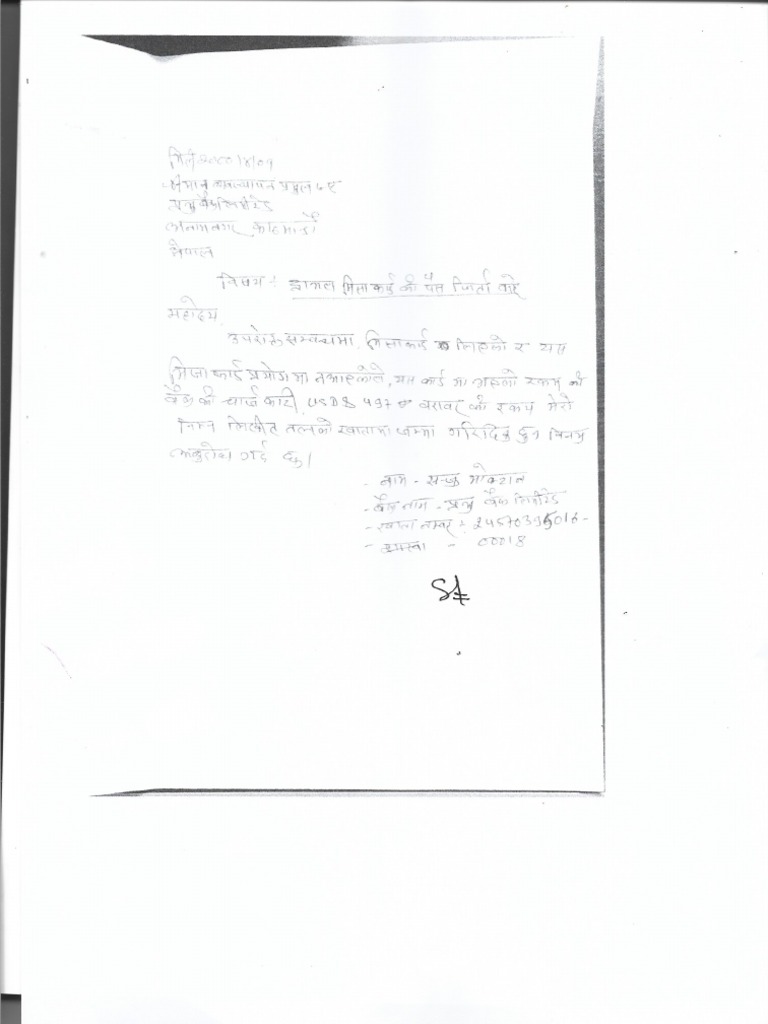 मिति २०८०/४/०१
श्रीमान् व्यवस्थापन प्रमुख ज्यू
प्रभु बैंक लिमिटेड
अनामनगर काठमाडौं
नेपाल
विषय: भिसा कार्ड को पैसा फिर्ता बारे
महोदय,
उपरोक्त सम्बन्धमा, भिसा कार्ड लिएको र यस
भिसा कार्ड प्रयोगमा नआएकोले, यस कार्ड मा रहेको रकम को
बैंक को चार्ज काटी, USD$ बराबर को रकम मेरो
निम्न लिखित तलको खातामा जम्मा गरिदिनु हुन विनम्र
अनुरोध गर्द छु।
- नाम -
- बैंक नाम - प्रभु बैंक लिमिटेड
- खाता नम्बर :
- शाखा - 00018